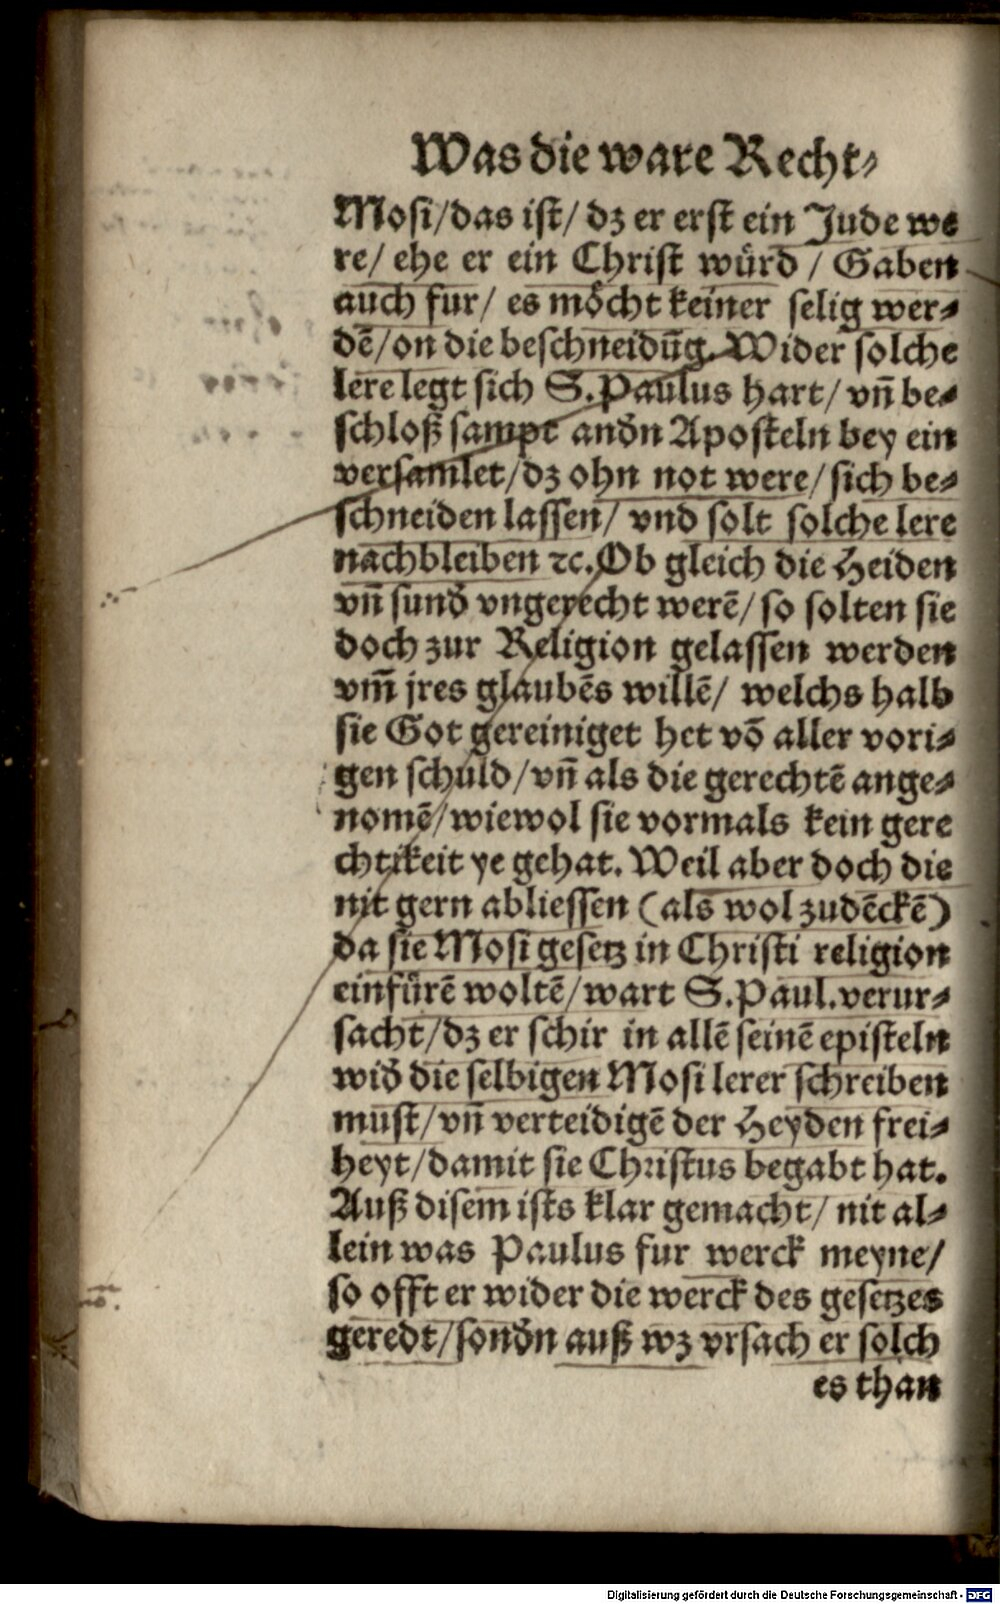 Was die ware Recht⸗
Mosi/das ist/ dz er erst ein Jude we
re/ ehe er ein Christ würd / Gaben
auch fur/ es möcht keiner selig wer⸗
dē/on die beschneidūg. Wider solche
lere legt sich S.Paulus hart/ vñ be⸗
schloß sampt andn̄ Aposteln bey ein
versamlet/dz ohn not were/sich be⸗
schneiden lassen/ vnd solt solche lere
nachbleiben ⁊c. Ob gleich die Heiden
vñ sund vngerecht werē/ so solten sie
doch zur Religion gelassen werden
vm̄ jres glaubēs willē/ welchs halb
sie Got gereiniget het vō aller vori⸗
gen schuld/vñ als die gerechtē ange⸗
nomē/wiewol sie vormals kein gere
chtikeit ye gehat. Weil aber doch die
nit gern abliessen (als wol zudēckē)
da sie Mosi gesetz in Christi religion
einfürē woltē/wart S.Paul.verur⸗
sacht/dz er schir in allē seinē episteln
wid̕ die selbigen Mosi lerer schreiben
must/vñ verteidigē der Heyden frei⸗
heyt/damit sie Christus begabt hat.
Auß disem ists klar gemacht/ nit al⸗
lein was Paulus fur werck meyne/
so offt er wider die werck des gesetzes
geredt/sond̕n auß wz vrsach er solch
es than
Digitalisierung gefördert durch die Deutsche Forschungsgemeinschaft - DFG